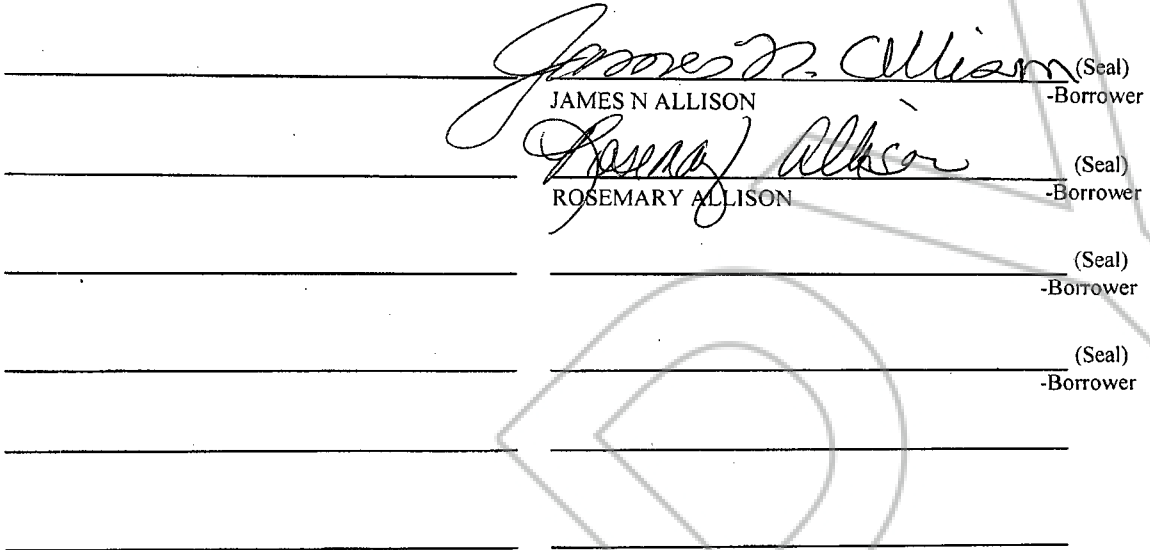 James N. Allison (Seal)
JAMES N ALLISON -Borrower
Rosemary Allison (Seal)
ROSEMARY ALLISON -Borrower
(Seal)
-Borrower
(Seal)
-Borrower